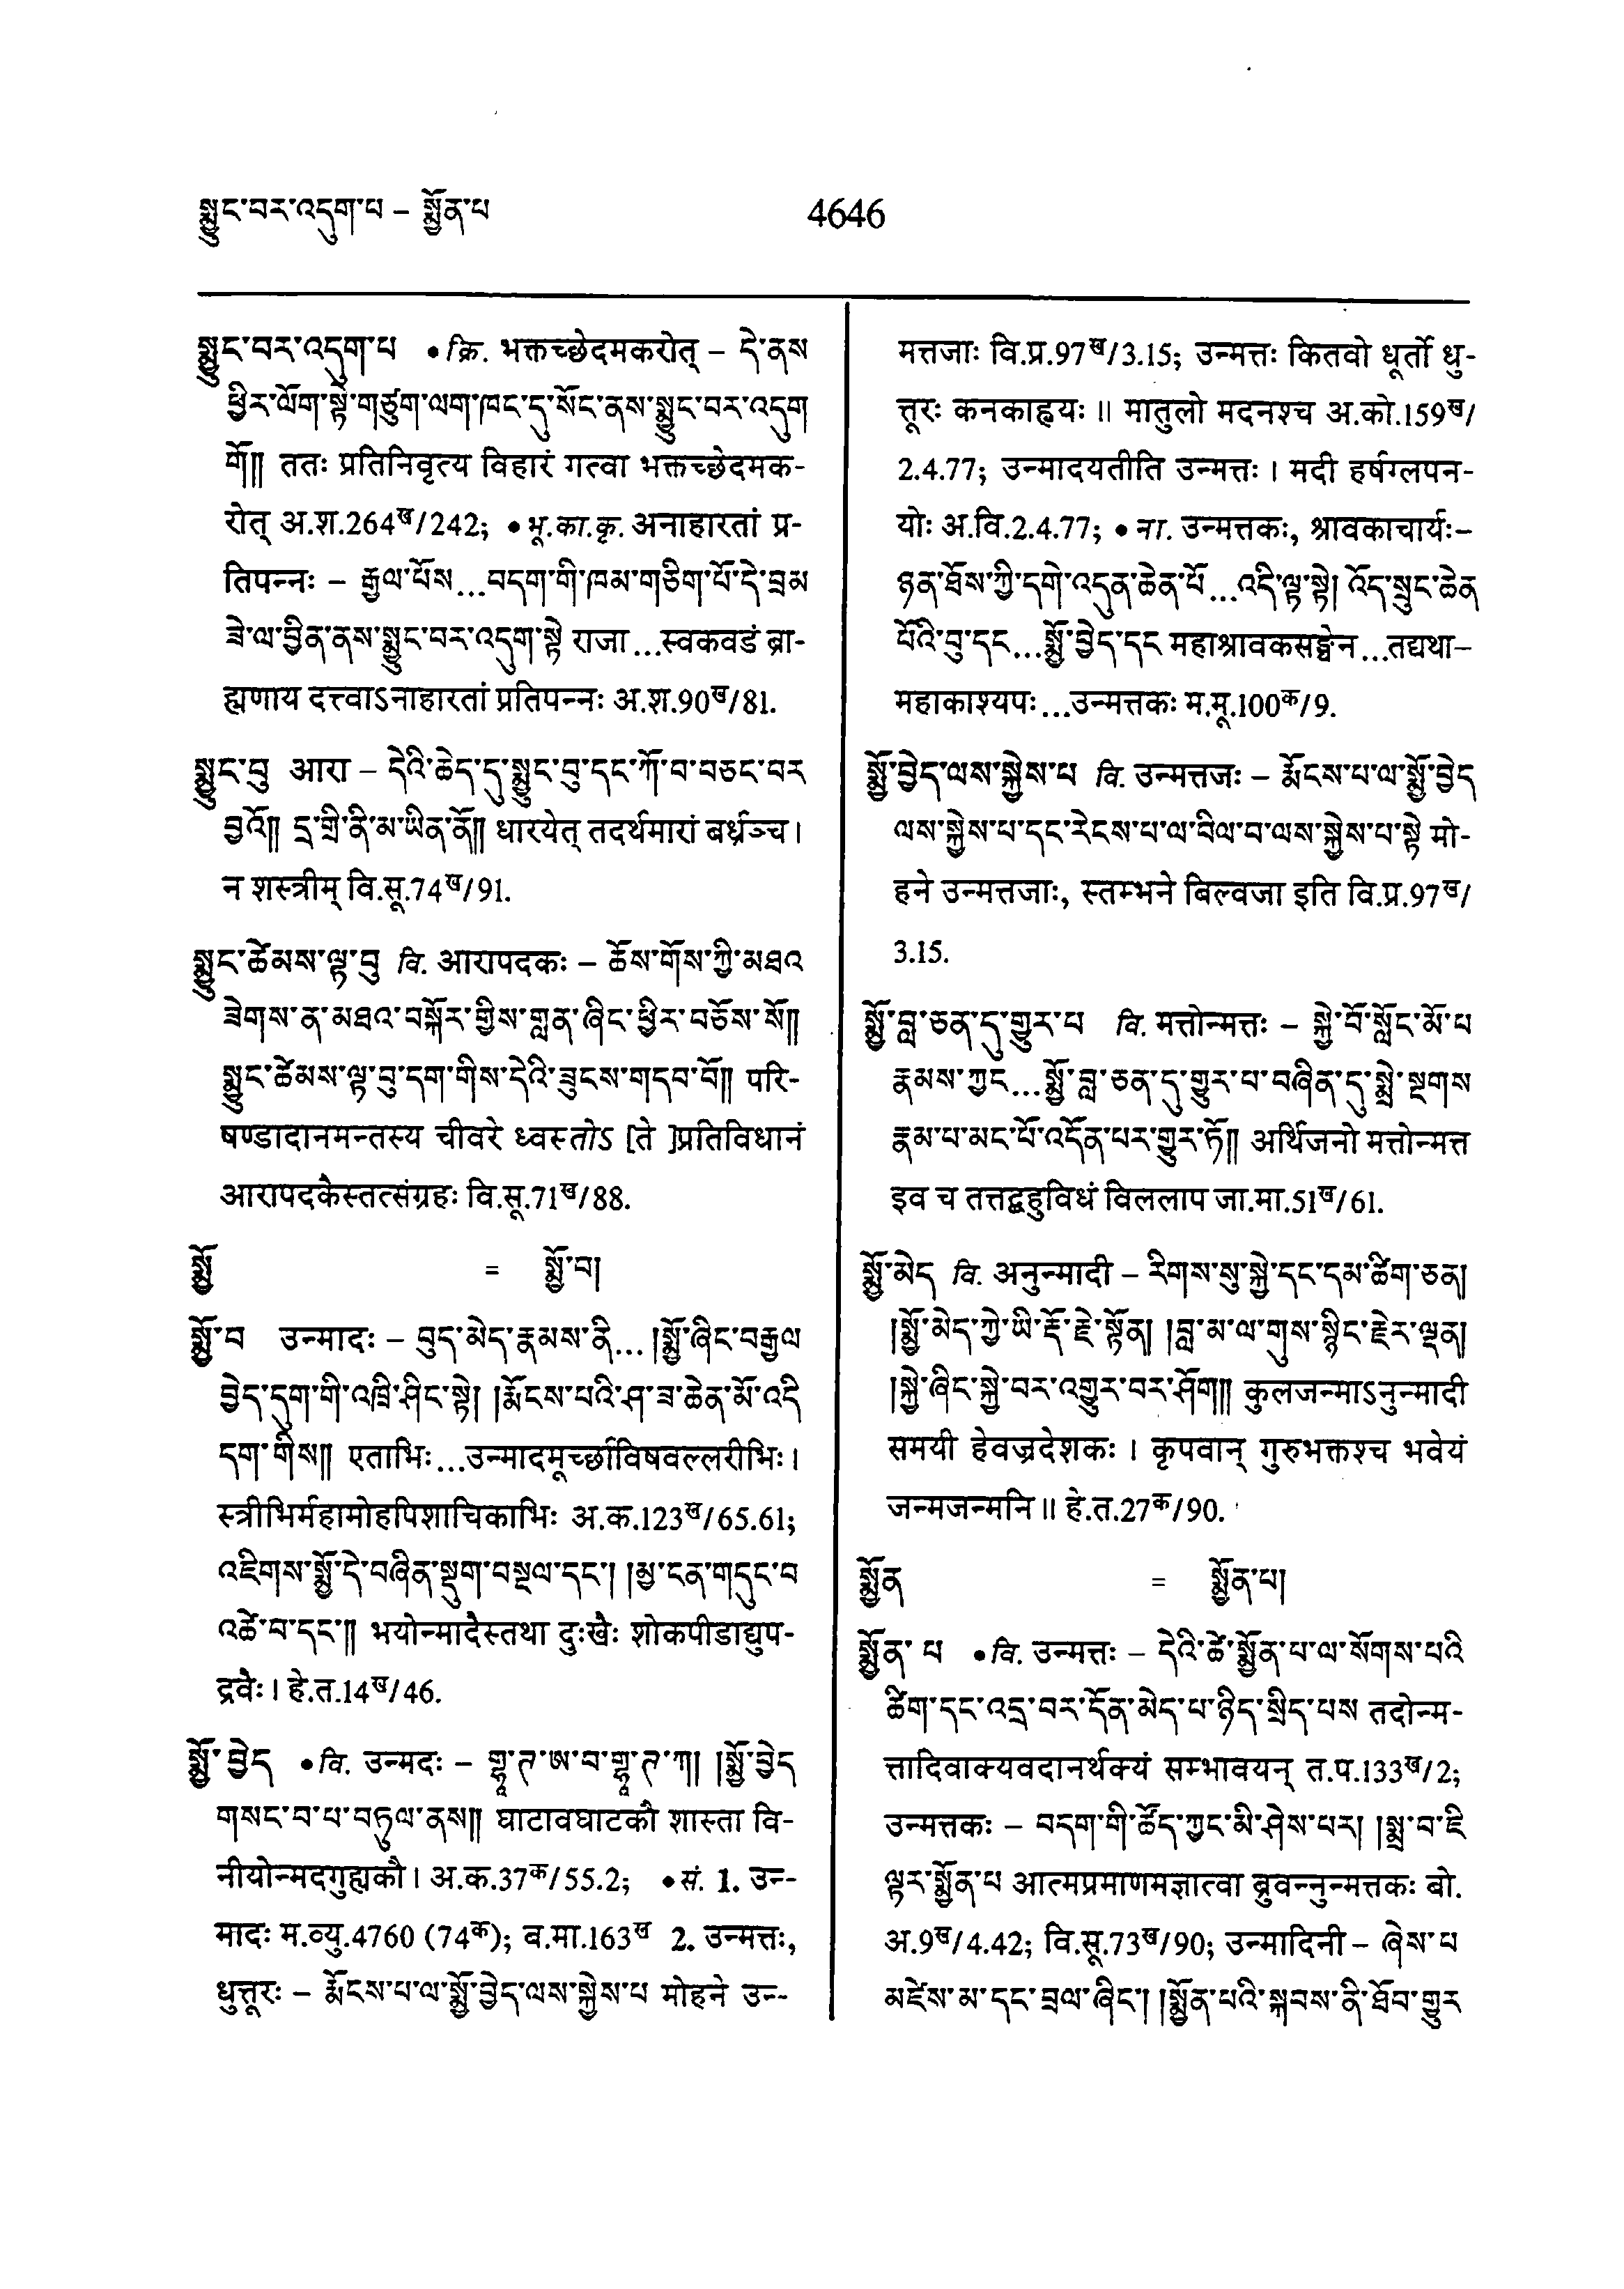 སྨྱུང་བར་འདུག་པ – སྨྱོན་པ
4646
སྨྱུང་བར་འདུག་པ •क्रि. भक्तच्छेदमकरोत् – དེ་ནས
ཕྱིར་ལོག་སྟེ་གཙུག་ལག་ཁང་དུ་སོང་ནས་སྨྱུང་བར་འདུག
གོ།། ततः प्रतिनिवृत्य विहारं गत्वा भक्तच्छेदमक-
रोत् अ.श.264ख/242; •भू.का.कृ. अनाहारतां प्र-
तिपन्नः – རྒྱལ་པོས...བདག་གི་ཁམ་གཅིག་པོ་དེ་བྲམ
ཟེ་ལ་བྱིན་ནས་སྨྱུང་བར་འདུག་སྟེ राजा...स्वकवडं ब्रा-
ह्मणाय दत्त्वाऽनाहारतां प्रतिपन्नः अ.श.90ख/81.
སྨྱུང་བུ आरा – དེའི་ཆེད་དུ་སྨྱུང་བུ་དང་ཀོ་བ་བཅང་བར
བྱའོ།། དྲ་གྲི་ནི་མ་ཡིན་ནོ།། धारयेत् तदर्थमारां बर्ध्रञ्च।
न शस्त्रीम् वि.सू.74ख/91.
སྨྱུང་ཚེམས་ལྟ་བུ वि. आरापदकः – ཆོས་གོས་ཀྱི་མཐའ
ཟེགས་ན་མཐའ་བསྐོར་གྱིས་གླན་ཞིང་ཕྱིར་བཅོས་སོ།།
སྨྱུང་ཚེམས་ལྟ་བུ་དག་གིས་དེའི་ཟུངས་གདབ་བོ།། परि-
षण्डादानमन्तस्य चीवरे ध्वस्तोऽ [ते ]प्रतिविधानं
आरापदकैस्तत्संग्रहः वि.सू.71ख/88.
སྨྱོ = སྨྱོ་བ།
སྨྱོ་བ उन्मादः – བུད་མེད་རྣམས་ནི... །སྨྱོ་ཞིང་བརྒྱལ
བྱེད་དུག་གི་འཁྲི་ཤིང་སྟེ། །རྨོངས་པའི་ཤ་ཟ་ཆེན་མོ་འདི
དག་གིས།། एताभिः...उन्मादमूर्च्छाविषवल्लरीभिः।
स्त्रीभिर्महामोहपिशाचिकाभिः अ.क.123ख/65.61;
འཇིགས་སྨྱོ་དེ་བཞིན་སྡུག་བསྔལ་དང་། །མྱ་ངན་གདུང་བ
འཚེ་བ་དང་།། भयोन्मादैस्तथा दुःखैः शोकपीडाद्युप-
द्रवैः। हे.त.14ख/46.
སྨྱོ་བྱེད •वि. उन्मदः – གྷཱ་ཊ་ཨ་བ་གྷཱ་ཊ་ཀ། །སྨྱོ་བྱེད
གསང་བ་པ་བཏུལ་ནས།། घाटावघाटकौ शास्ता वि-
नीयोन्मदगुह्यकौ। अ.क.37क/55.2; •सं. 1. उन्-
मादः म.व्यु.4760 (74क); व.मा.163ख 2. उन्मत्तः,
धुत्तूरः – རྨོངས་པ་ལ་སྨྱོ་བྱེད་ལས་སྐྱེས་པ मोहने उन्-
मत्तजाः वि.प्र.97ख/3.15; उन्मत्तः कितवो धूर्तो धु-
त्तूरः कनकाह्वयः॥ मातुलो मदनश्च अ.को.159ख/
2.4.77; उन्मादयतीति उन्मत्तः। मदी हर्षग्लपन-
योः अ.वि.2.4.77; •ना. उन्मत्तकः, श्रावकाचार्यः–
ཉན་ཐོས་ཀྱི་དགེ་འདུན་ཆེན་པོ...འདི་ལྟ་སྟེ། འོད་སྲུང་ཆེན
པོའི་བུ་དང...སྨྱོ་བྱེད་དང महाश्रावकसङ्घेन...तद्यथा–
महाकाश्यपः...उन्मत्तकः म.मू.100क/9.
སྨྱོ་བྱེད་ལས་སྐྱེས་པ वि. उन्मत्तजः – རྨོངས་པ་ལ་སྨྱོ་བྱེད
ལས་སྐྱེས་པ་དང་རེངས་པ་ལ་བིལ་བ་ལས་སྐྱེས་པ་སྟེ मो-
हने उन्मत्तजाः, स्तम्भने बिल्वजा इति वि.प्र.97ख/
3.15.
སྨྱོ་བླ་ཅན་དུ་གྱུར་པ वि. मत्तोन्मत्तः – སྐྱེ་བོ་སློང་མོ་པ
རྣམས་ཀྱང...སྨྱོ་བླ་ཅན་དུ་གྱུར་པ་བཞིན་དུ་སྨྲེ་སྔགས
རྣམ་པ་མང་པོ་འདོན་པར་གྱུར་ཏོ།། अर्थिजनो मत्तोन्मत्त
इव च तत्तद्बहुविधं विललाप जा.मा.51ख/61.
སྨྱོ་མེད वि. अनुन्मादी – རིགས་སུ་སྐྱེ་དང་དམ་ཚིག་ཅན།
།སྨྱོ་མེད་ཀྱེ་ཡི་རྡོ་རྗེ་སྟོན། །བླ་མ་ལ་གུས་སྙིང་རྗེར་ལྡན།
།སྐྱེ་ཞིང་སྐྱེ་བར་འགྱུར་བར་ཤོག།། कुलजन्माऽनुन्मादी
समयी हेवज्रदेशकः। कृपवान् गुरुभक्तश्च भवेयं
जन्मजन्मनि॥ हे.त.27क/90.
སྨྱོན = སྨྱོན་པ།
སྨྱོན་པ •वि. उन्मत्तः – དེའི་ཚེ་སྨྱོན་པ་ལ་སོགས་པའི
ཚིག་དང་འདྲ་བར་དོན་མེད་པ་ཉིད་སྲིད་པས तदोन्म-
त्तादिवाक्यवदानर्थक्यं सम्भावयन् त.प.133ख/2;
उन्मत्तकः – བདག་གི་ཚོད་ཀྱང་མི་ཤེས་པར། །སྨྲ་བ་ཇི
ལྟར་སྨྱོན་པ आत्मप्रमाणमज्ञात्वा ब्रुवन्नुन्मत्तकः बो.
अ.9ख/4.42; वि.सू.73ख/90; उन्मादिनी – ཞེས་པ
མཛེས་མ་དང་བྲལ་ཞིང་། །སྨྱོན་པའི་སྐབས་ནི་ཐོབ་གྱུར